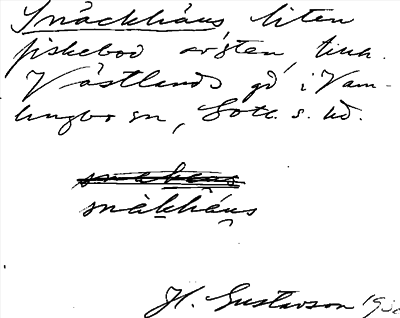 Snäckhäus liten
fiskebod av sten, till.
Västlands gd i Vam-
lingbo sn, Gotl. s. hd.
snàkháus
H. Gustavson